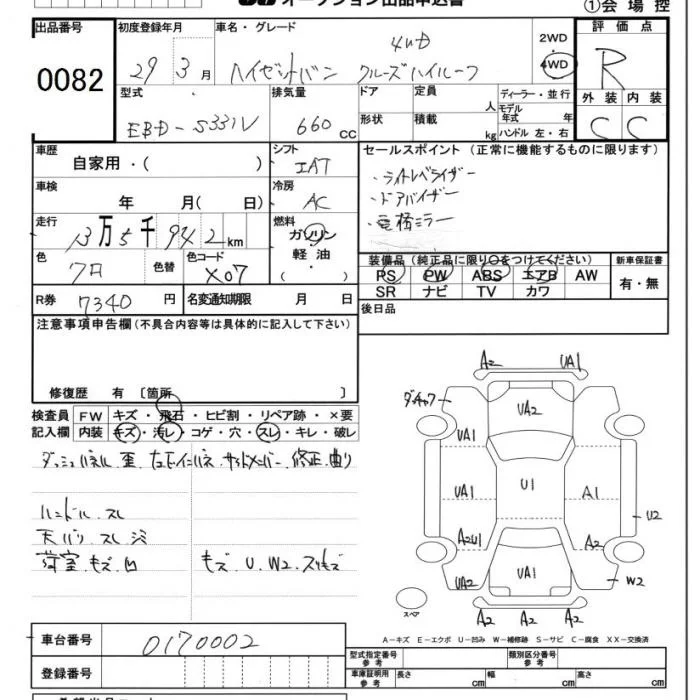 オークション出品申込書
①会場控
出品番号
0082
初度登録年月
29年3月
車名・グレード
4WD
ハイゼットバン クルーズハイルーフ
2WD
・
4WD
評価点
R
外装 内装
C C
型式
EBD-S331V
排気量
660 cc
ドア
形状
定員
人
積載
kg
ディーラー・並行
モデル年式 年
ハンドル 左・右
車歴
自家用・( )
シフト
IAT
セールスポイント (正常に機能するものに限ります)
・ライトレベライザー
・ドアバイザー
・電格ミラー
車検
年 月( 日)
冷房
AC
走行
13万5千942km
燃料
ガソリン
・
軽油
( )
色
クロ
色替
色コード
X07
装備品 (純正品に限り○をつけてください)
PS PW ABS エアB AW
SR ナビ TV カワ
新車保証書
有・無
R券
7340円
名変通知期限 月 日
後日品
注意事項申告欄(不具合内容等は具体的に記入して下さい)
修復歴 有 〔箇所 〕
検査員記入欄
FW キズ・飛石・ヒビ割・リペア跡・×要
内装 キズ・汚レ・コゲ・穴・スレ・キレ・破レ
ハンドル スレ
荷室 キズ 凹
キズ、U、W2、スリキズ
A2 UA1
UA2
UA1
UA1 U1 A1
U2
A2U1 A2
UA1
UA2 W2
A2 A2 A2
スペア
A-キズ E-エクボ U-凹み W-補修跡 S-サビ C-腐食 XX-交換済
車台番号
0170002
登録番号
型式指定番号 参考
類別区分番号 参考
車庫証明用 参考
長さ cm 幅 cm 高さ cm